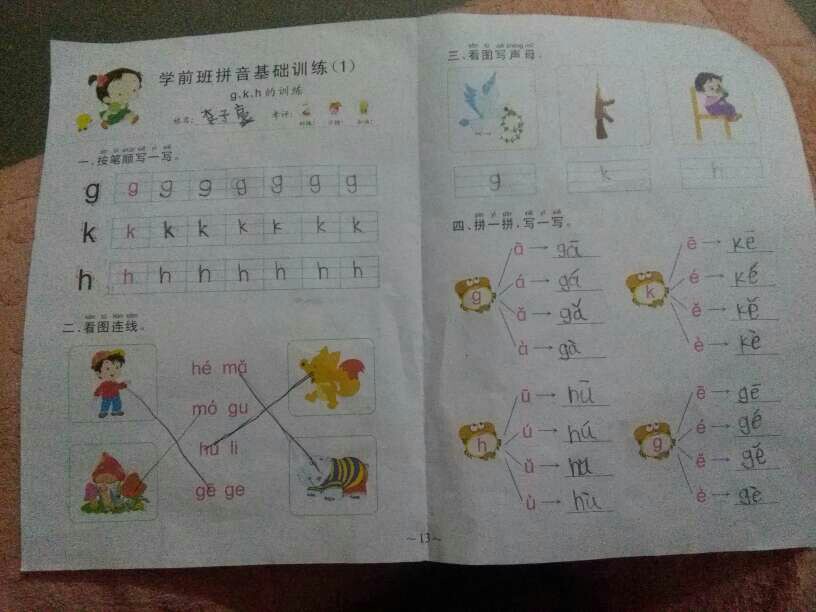 学前班拼音基础训练(1)
g、k、h 的训练
姓名:
一.按笔顺写一写。
g g g g g g g g
k k k k k k k k
h h h h h h h h
二.看图连线。
hé mǎ
mó gu
hú li
gē ge
三.看图写声母。
g k h
四.拼一拼,写一写。
g
ā → gā
á → gá
ǎ → gǎ
à → gà
k
ē → kē
é → ké
ě → kě
è → kè
h
ū → hū
ú → hú
ǔ → hu
ù → hù
g
ē → gē
é → gé
ě → gě
è → gè
~13~